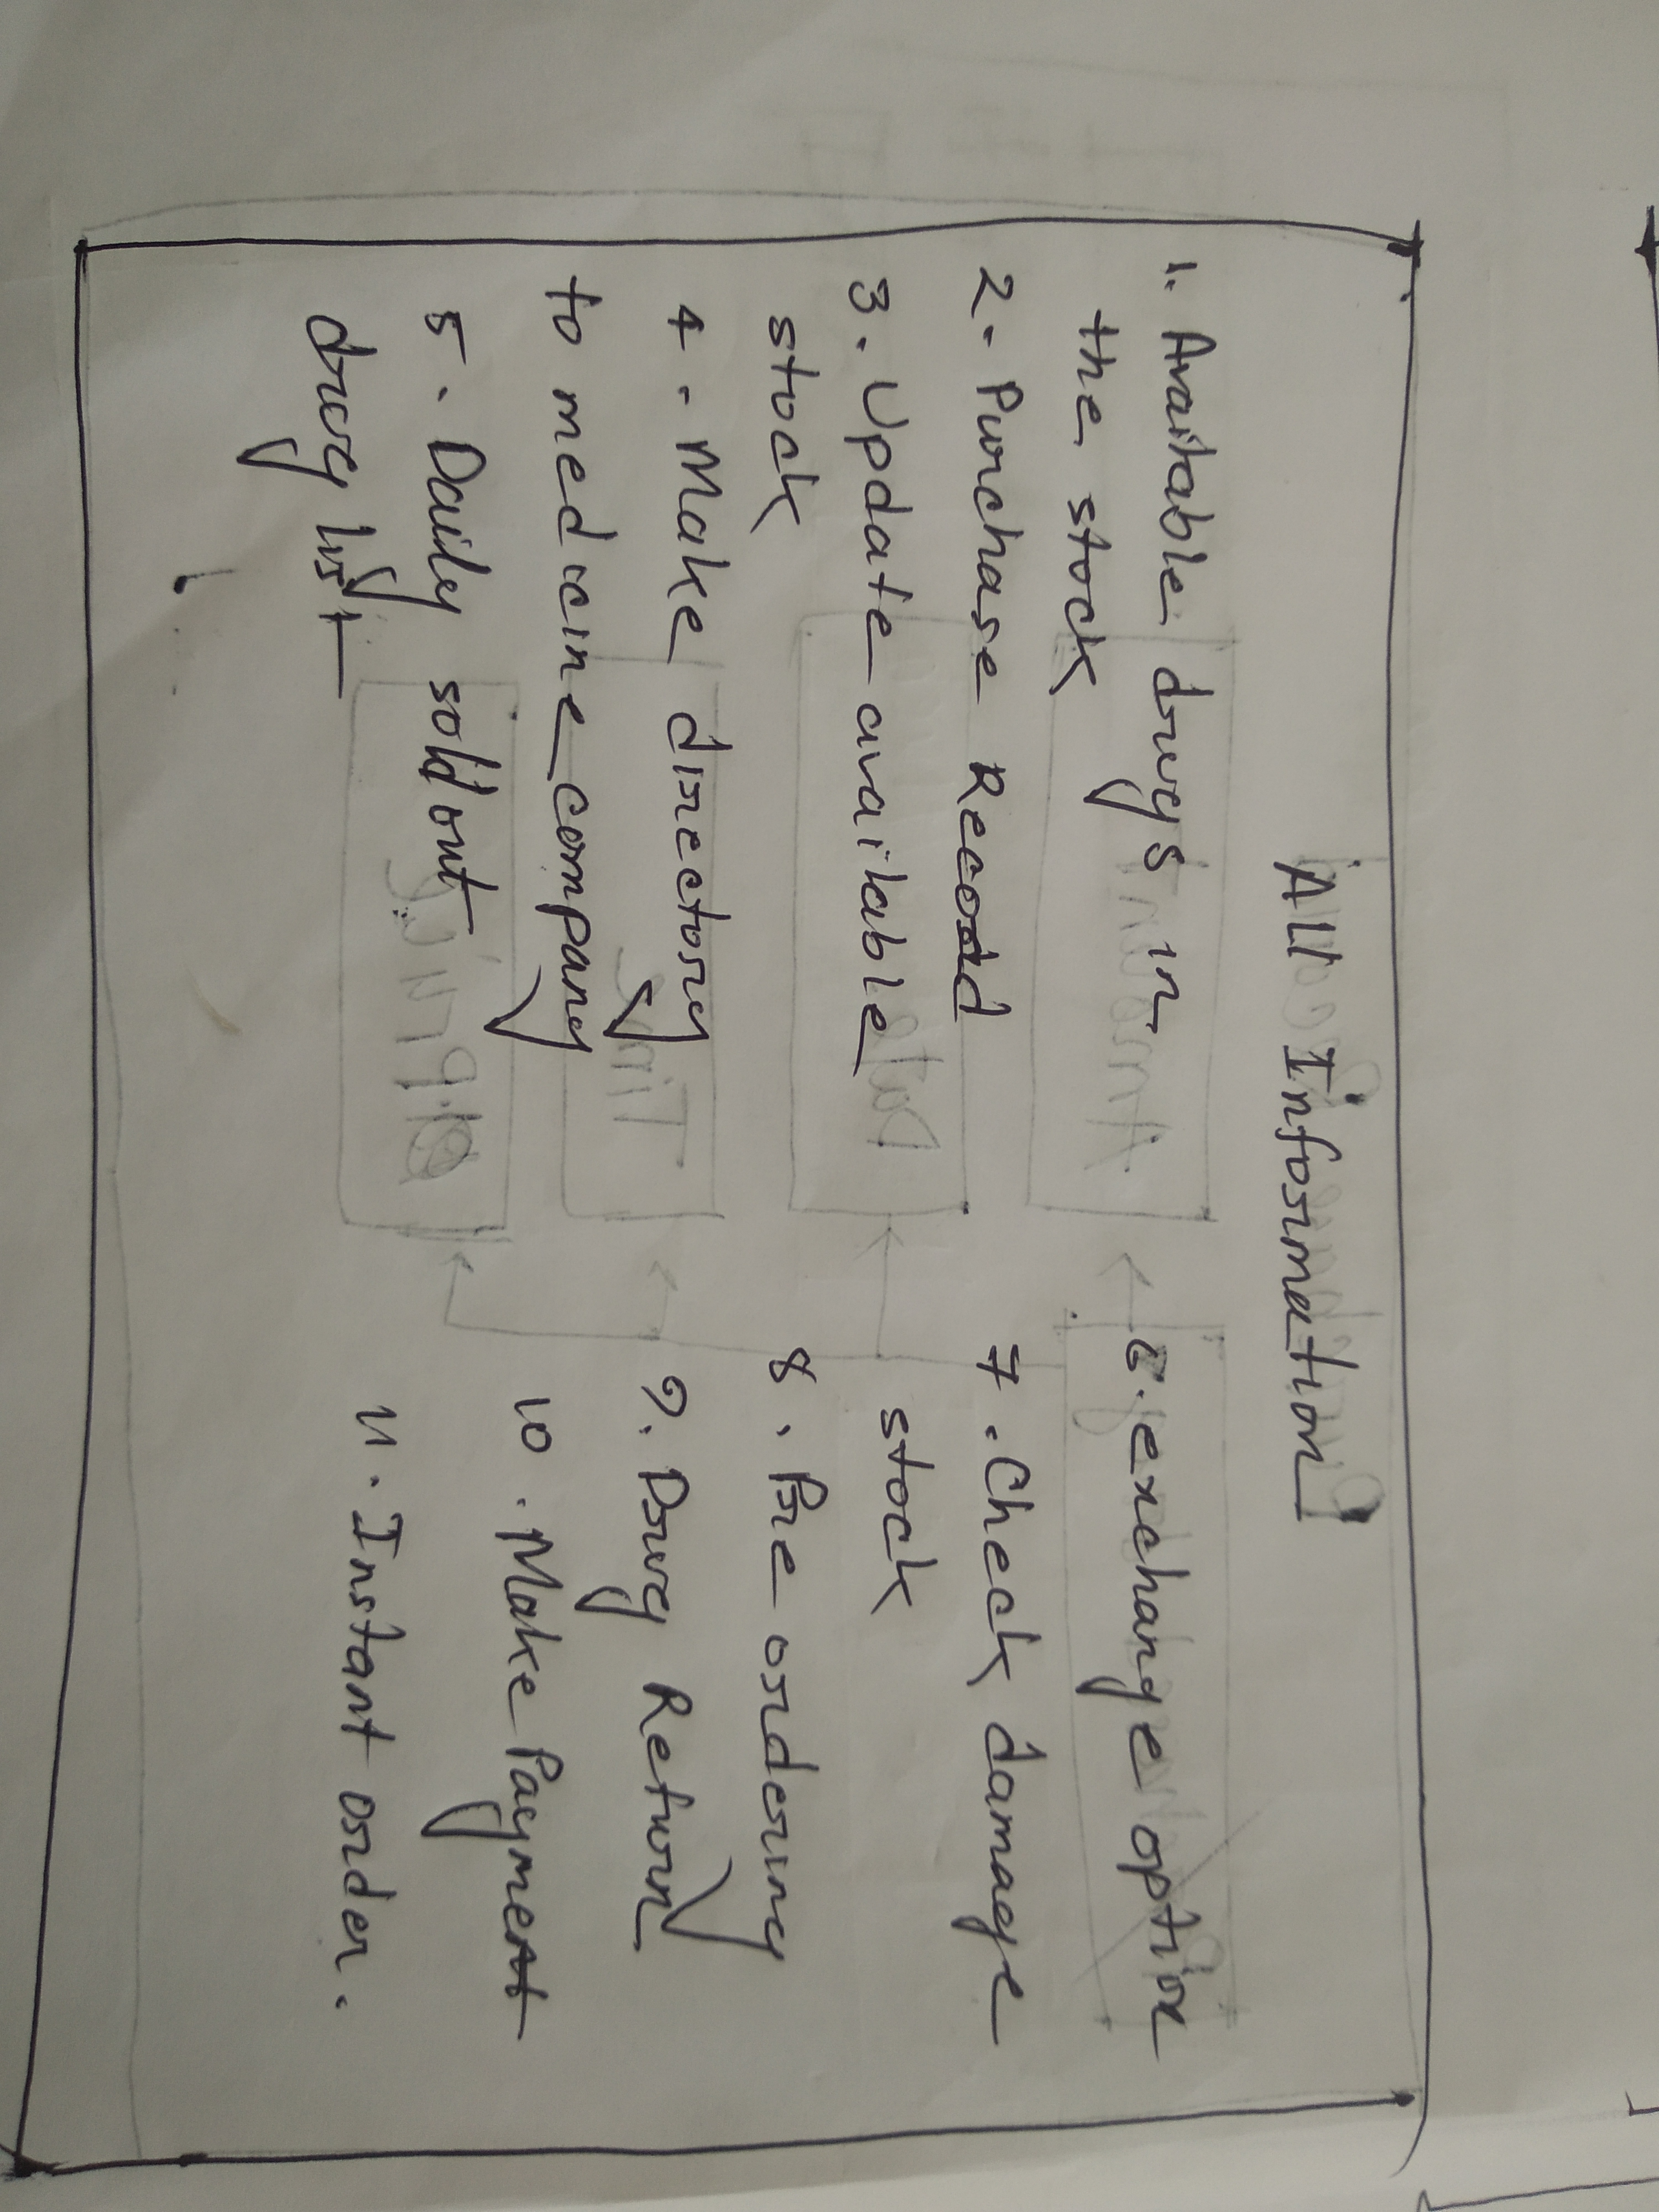 All Information
1. Available drugs in
the stock
2. Purchase Recod
3. Update available
stock
4. Make directory
to medicine company
5. Daily sold out
drug list
6. exchange option
7. Check damage
stock
8. Pre ordering
9. Drug Return
10. Make Payment
11. Instant order.